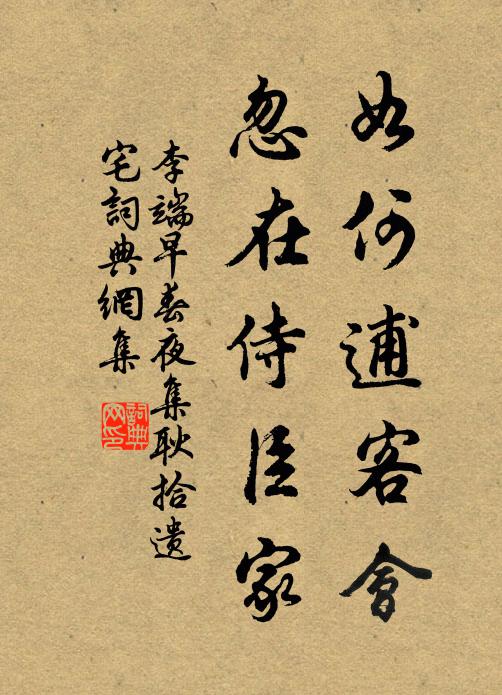 如何逋客會
忽在侍臣家
李端早春夜集耿拾遺
宅詞典網集
詞典
网印